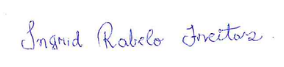 Ingrid Rabelo Freitas.